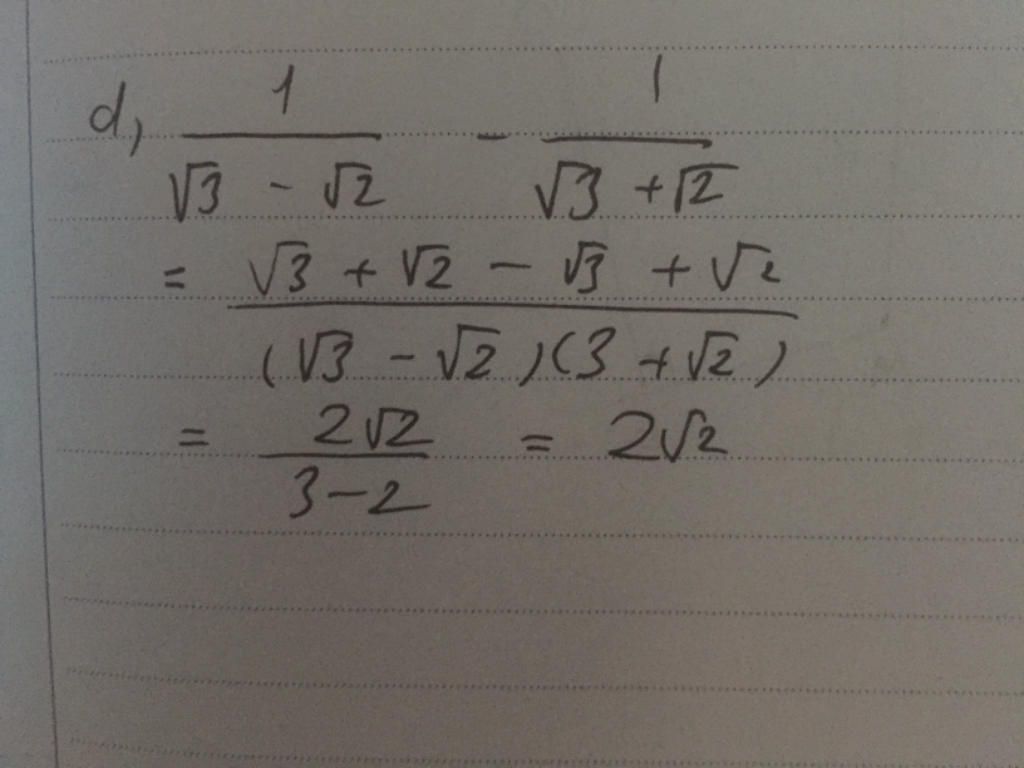 d, 1/(√3 - √2) - 1/(√3 + √2)
= (√3 + √2 - √3 + √2)/((√3 - √2)(3 + √2))
= 2√2/(3 - 2) = 2√2